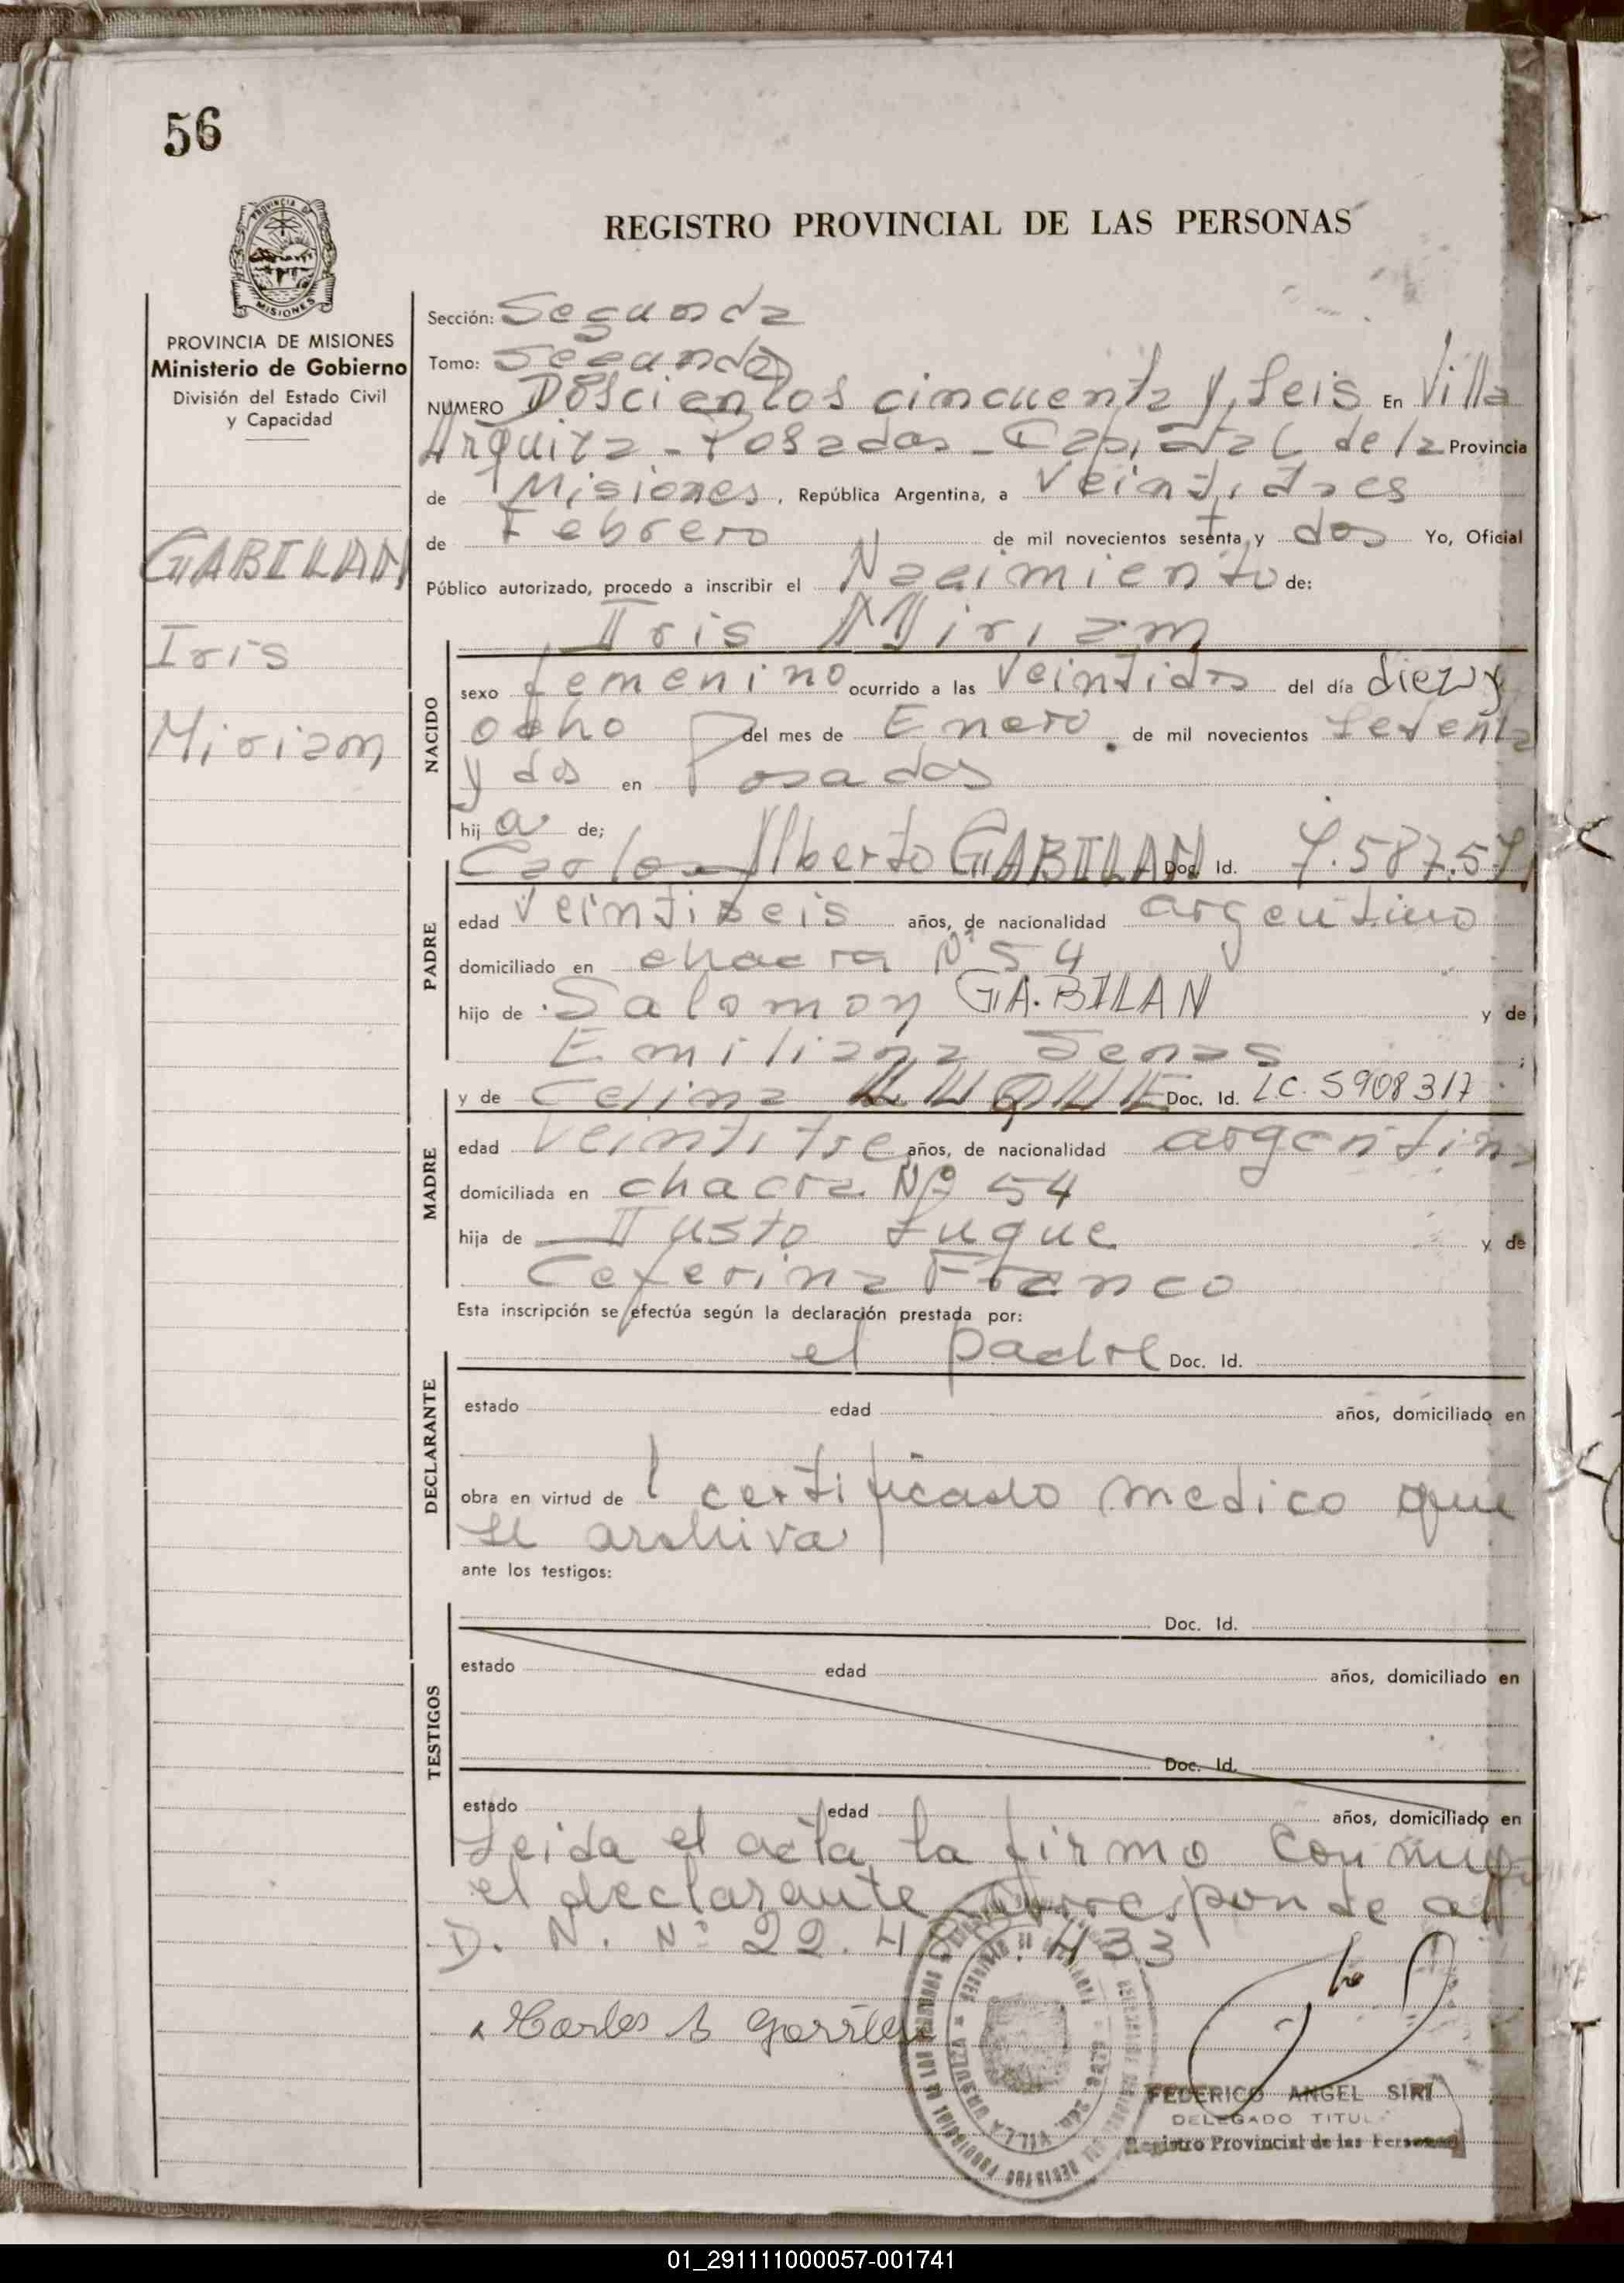 56
REGISTRO PROVINCIAL DE LAS PERSONAS
PROVINCIA DE
MISIONES
PROVINCIA DE MISIONES
Ministerio de Gobierno
División del Estado Civil
y Capacidad
GABILAN
Iris
Miriam
Sección: Segunda
Tomo: Segundo
NUMERO Doscientos cincuenta y seis En Villa
Urquiza - Posadas - Capital de la Provincia
de Misiones, República Argentina, a Veintitres
de Febrero de mil novecientos sesenta y dos Yo, Oficial
Público autorizado, procedo a inscribir el Nacimiento de:
Iris Miriam
NACIDO
sexo femenino ocurrido a las veintidos del día diez y
ocho del mes de Enero de mil novecientos setenta
y dos en Posadas
hija de;
Carlos Alberto GABILAN Doc. Id. 7.587.57
PADRE
edad veintiseis años, de nacionalidad argentino
domiciliado en chacra Nº 54
hijo de Salomon GABILAN y de
Emiliana
y de Celina LUQUE Doc. Id. L.C. 5908317
MADRE
edad veintitre años, de nacionalidad argentina
domiciliada en chacra Nº 54
hija de Justo Luque y de
Ceferina Franco
Esta inscripción se efectúa según la declaración prestada por:
el padre Doc. Id.
DECLARANTE
estado edad años, domiciliado en
obra en virtud de l certificado medico que
se archiva
ante los testigos:
TESTIGOS
Doc. Id.
estado edad años, domiciliado en
Doc. Id.
estado edad años, domiciliado en
Leida el acta, la firmo con
el declarante corresponde al
D. N. Nº 22.4 .433
Carlos
VILLA URQUIZA
FEDERICO ANGEL SIRI
DELEGADO TITUL
Registro Provincial de las Personas
01_291111000057-001741